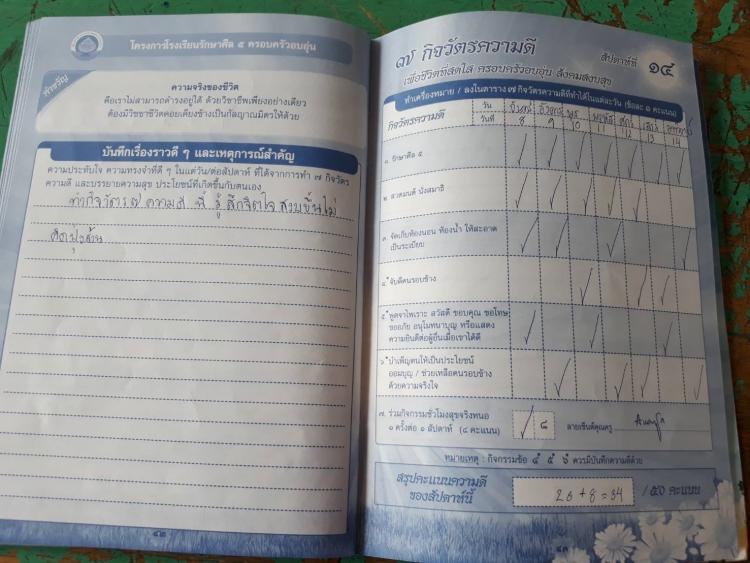 โครงการโรงเรียนรักษาศีล ๕ ครอบครัวอบอุ่น
คำขวัญ
ความจริงของชีวิต
คือเราไม่สามารถดำรงอยู่ได้ ด้วยวิชาชีพเพียงอย่างเดียว
ต้องมีวิชชาชีวิตคอยเคียงข้างเป็นกัลยาณมิตรให้ด้วย
บันทึกเรื่องราวดี ๆ และเหตุการณ์สำคัญ
ความประทับใจ ความทรงจำที่ดี ๆ ในแต่วัน/ต่อสัปดาห์ ที่ได้จากการทำ ๗ กิจวัตร
ความดี และบรรยายความสุข ประโยชน์ที่เกิดขึ้นกับตนเอง
ทำกิจวัตร ๗ ความดี นี้ รู้สึกจิตใจสงบขึ้นไม่
คิดฟุ้งซ่าน
๔๒
๗ กิจวัตรความดี
สัปดาห์ที่ ๑๔
เพื่อชีวิตที่สดใส ครอบครัวอบอุ่น สังคมสงบสุข
ทำเครื่องหมาย / ลงในตาราง ๗ กิจวัตรความดีที่ทำได้ในแต่ละวัน (ข้อละ ๑ คะแนน)
กิจวัตรความดี
วัน จันทร์ อังคาร พุธ พฤหัส ศุกร์ เสาร์ อาทิตย์
วันที่ 8 9 10 11 12 13 14
๑. รักษาศีล ๕
๒. สวดมนต์ นั่งสมาธิ
๓. จัดเก็บห้องนอน ห้องน้ำ ให้สะอาด
เป็นระเบียบ
๔. จับดีคนรอบข้าง
๕. พูดจาไพเราะ สวัสดี ขอบคุณ ขอโทษ
ขออภัย อนุโมทนาบุญ หรือแสดง
ความยินดีต่อผู้อื่นเมื่อเขาได้ดี
๖. บำเพ็ญตนให้เป็นประโยชน์
ออมบุญ / ช่วยเหลือคนรอบข้าง
ด้วยความจริงใจ
๗. ร่วมกิจกรรมชั่วโมงสุขจริงหนอ
๑ ครั้งต่อ ๑ สัปดาห์ (๔ คะแนน)
๘
ลายเซ็นต์คุณครู
หมายเหตุ : กิจกรรมข้อ ๔ ๕ ๖ ควรมีบันทึกความดีด้วย
สรุปคะแนนความดี
ของสัปดาห์นี้
26 + 8 = 34
/ ๕๐ คะแนน
๔๓